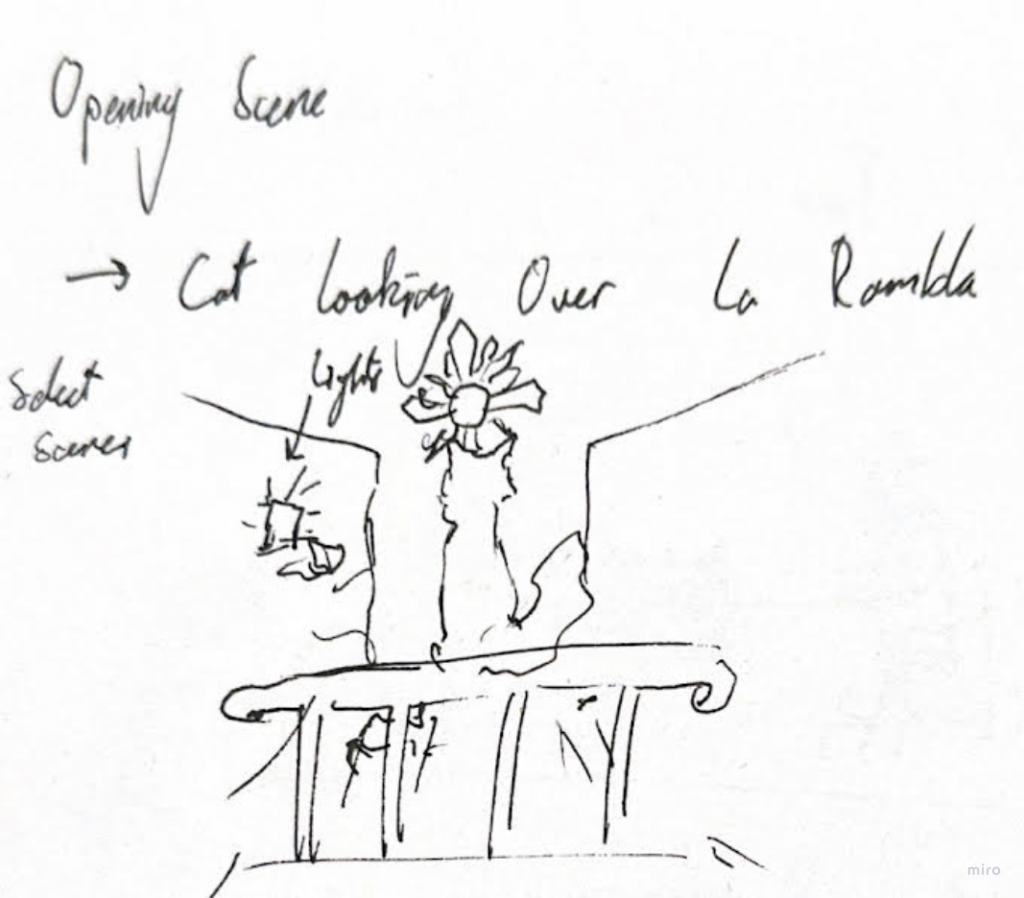 Opening Scene
→ Cat Looking Over La Rambla
Lights
Select
scenes
miro